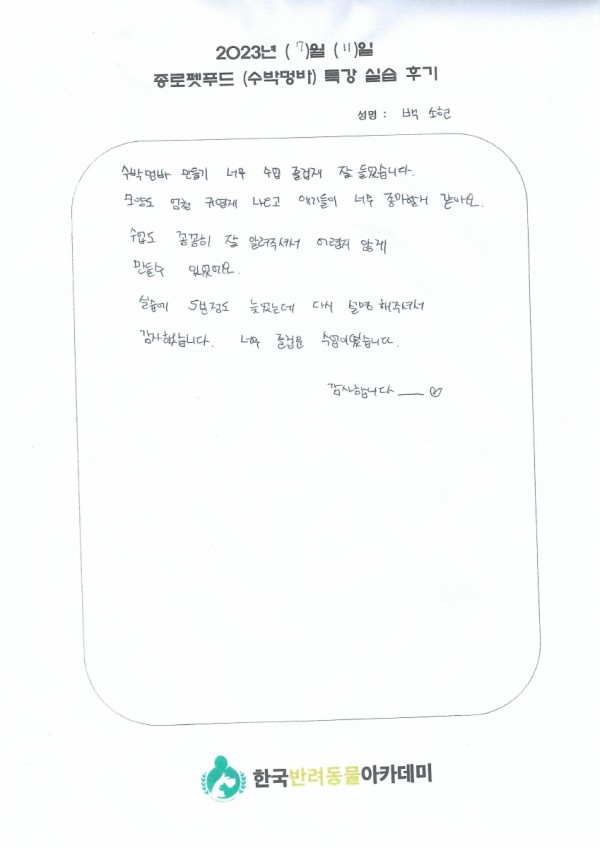 2023년 ( 7 )월 ( 11 )일
종로펫푸드 (수박멍바) 특강 실습 후기
성명 : 백 소현
수박멍바 만들기 너무 수업 즐겁게 잘 들었습니다.
모양도 엄청 귀엽게 나오고 애기들이 너무 좋아할거 같아요.
수업도 꼼꼼히 잘 알려주셔서 어렵지 않게
만들수 있었어요.
실습에 5분정도 늦었는데 다시 설명 해주셔서
감사했습니다. 너무 즐거운 수업이었습니다.
감사합니다 ― ♡
한국반려동물아카데미